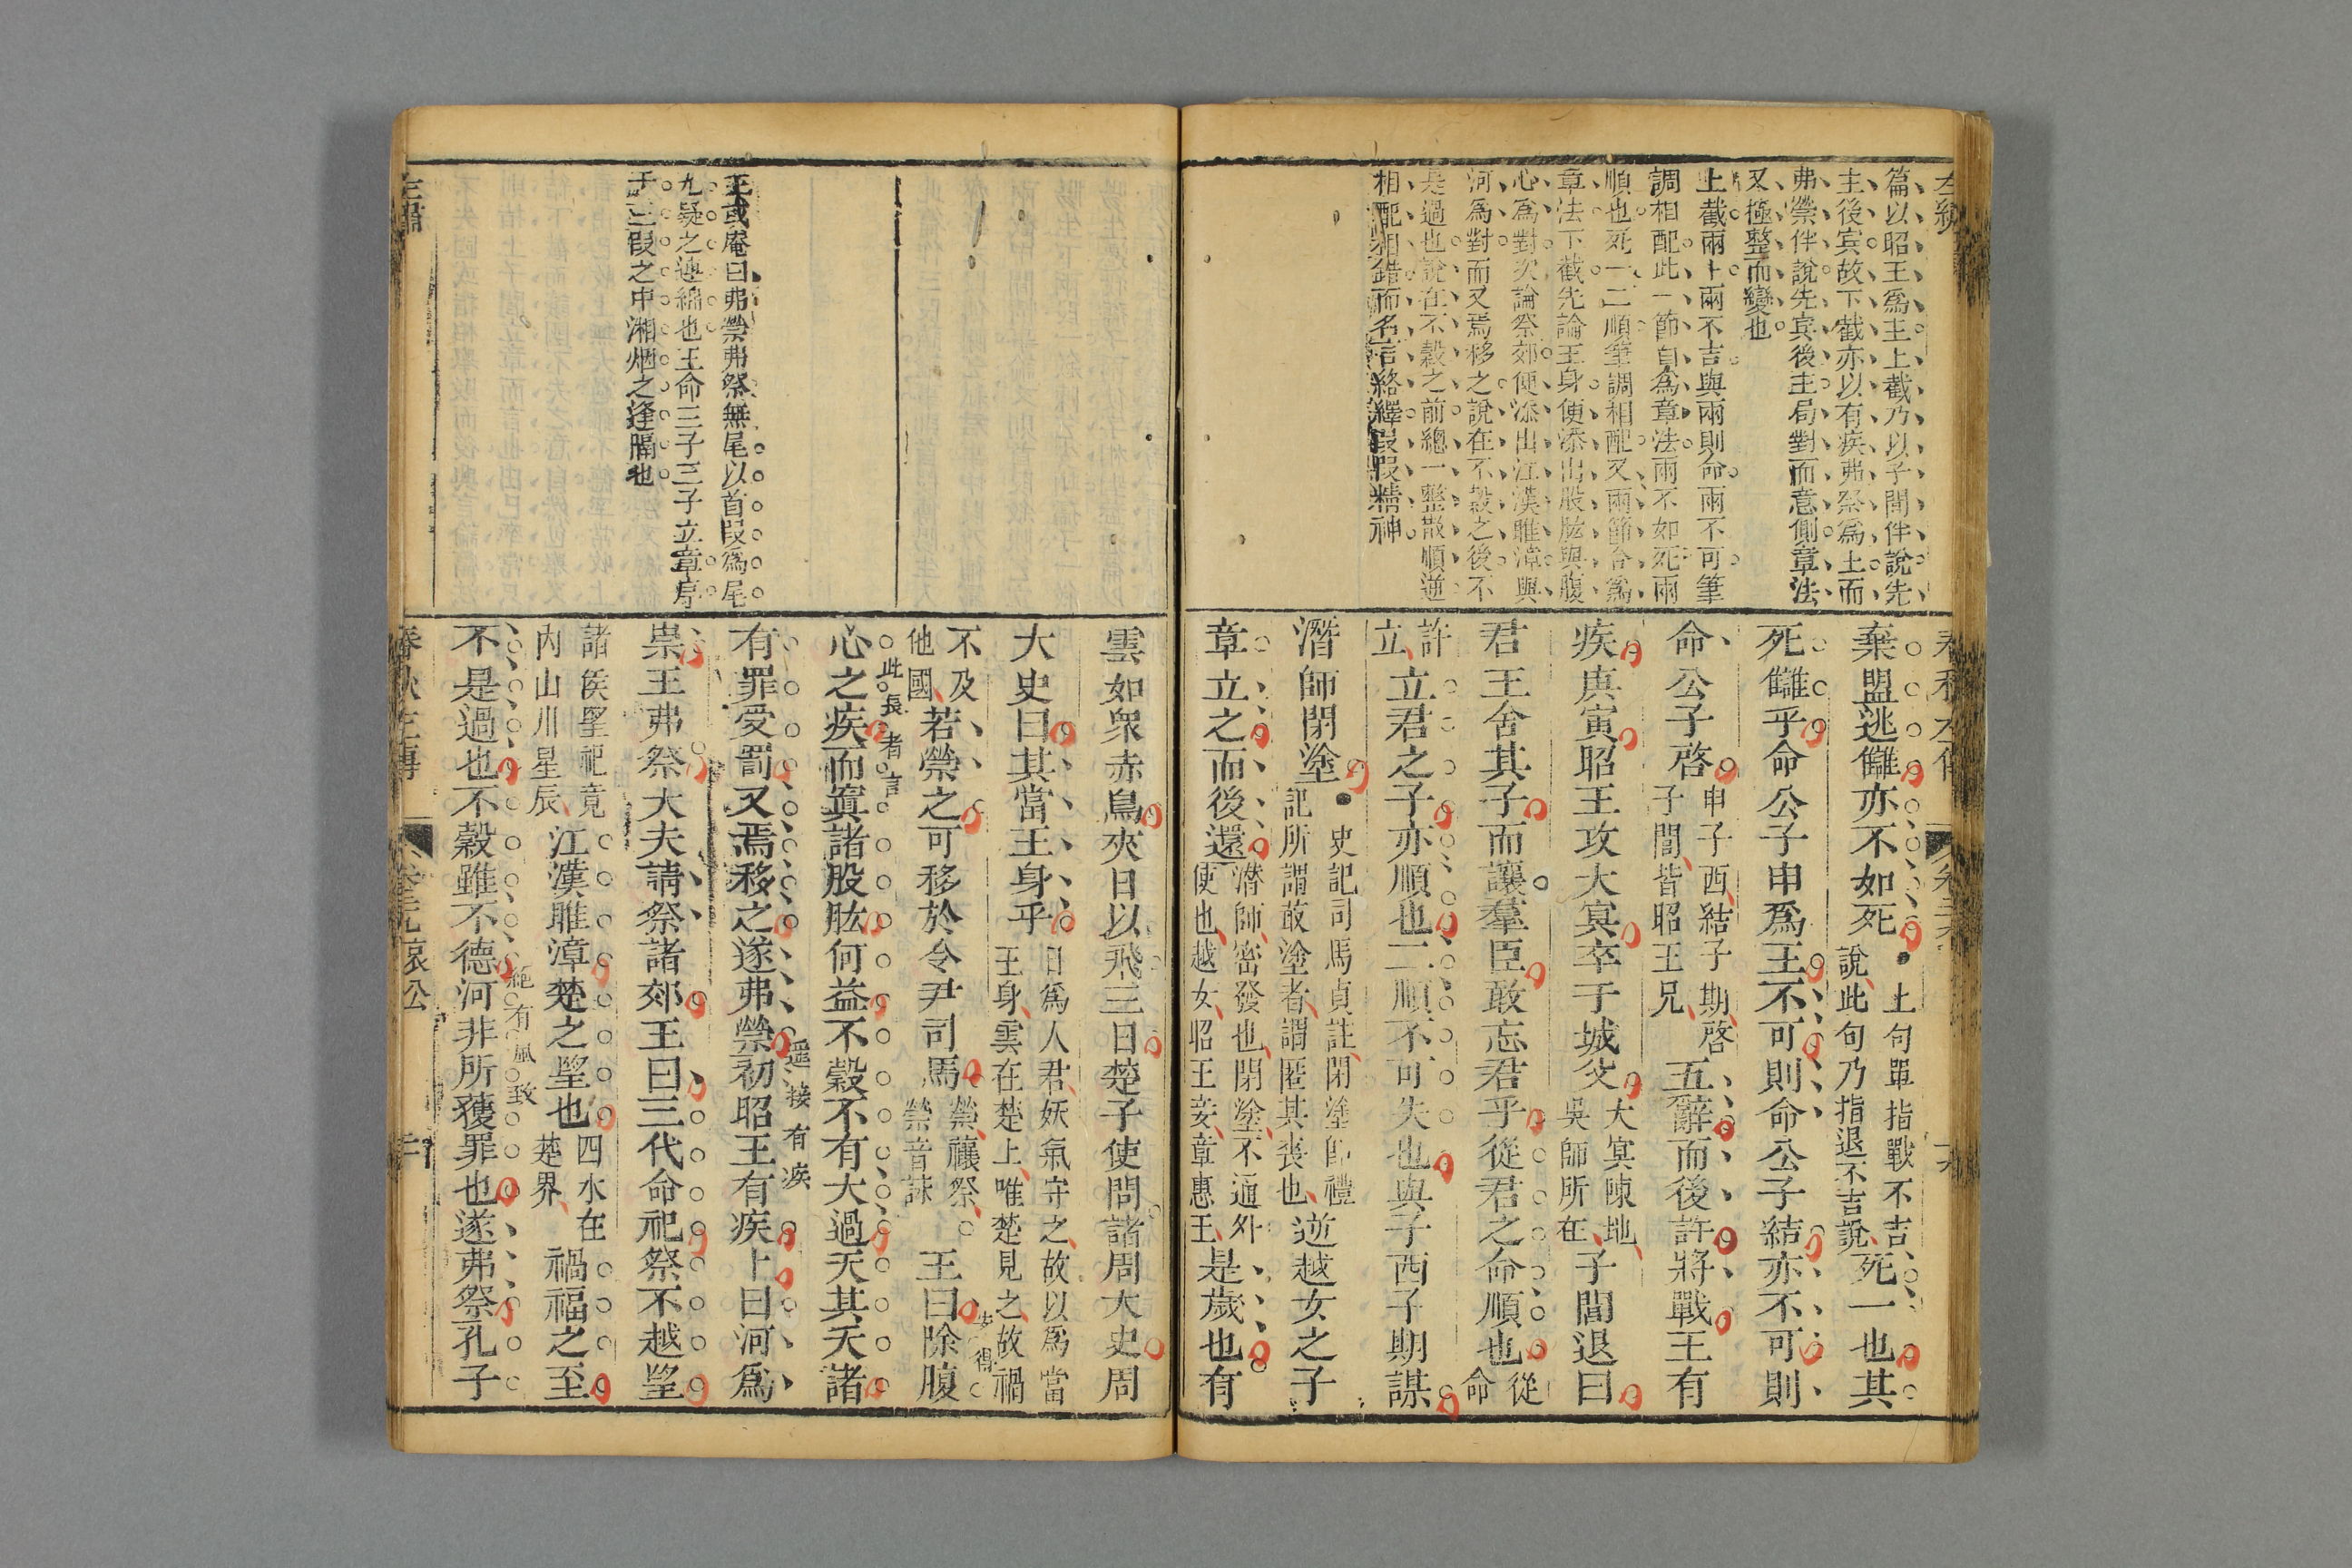 左繡
篇以昭王爲主上截乃以子閭伴說先
主後宾故下截亦以有疾弗祭爲主而
弗禜伴說先宾後主局對而意側章法
又極整而變也
上截兩卜兩不吉與兩則命兩不可筆
調相配此一節自爲章法兩不如死兩
順也死一二順筆調相配又兩節合爲
章法下截先論王身便添出股肱與腹
心爲對次論祭郊便添出江漢雎漳與
河爲對而又焉移之說在不榖之後不
是過也說在不榖之前總一整散順逆
相配相錯而名言絡繹叚叚精神
春秋左傳
棄盟逃讎亦不如死 上句單指戰不吉
說此句乃指退不吉說 死一也其
死讎乎命公子申爲王不可則命公子結亦不可則
命公子啓 申子西結子期啓
子閭皆昭王兄 五辭而後許將戰王有
疾庚寅昭王攻大㝠卒于城父 大㝠陳地
吳師所在 子閭退曰
君王舍其子而讓羣臣敢忘君乎從君之命順也 從
命
許
立 立君之子亦順也二順不可失也與子西子期謀
潛師閉塗 史記司馬貞註閉塗卽禮
記所謂菆塗者謂匿其喪也 逆越女之子
章立之而後還 潛師密發也閉塗不通外
使也越女昭王妾章惠王 是歲也有
王或庵曰弗禜弗祭無尾以首叚爲尾
九疑之連綿也王命三子三子立章序
于三叚之中湘烟之逢膈也
雲如衆赤鳥夾日以飛三日楚子使問諸周大史周
大史曰其當王身乎 日爲人君妖氣守之故以爲當
王身雲在楚上唯楚見之故禍
不及
他國 若禜之可移於令尹司馬 禜禳祭
禜音詠 王曰除腹
心之疾而寘諸股肱何益不榖不有大過天其夭諸
此長者言
有罪受罰又焉移之遂弗禜初昭王有疾卜曰河爲
遥接有疾
祟王弗祭大夫請祭諸郊王曰三代命祀祭不越望
諸侯望祀竟
內山川星辰 江漢雎漳楚之望也 四水在
楚界 禍福之至
不是過也不榖雖不德河非所獲罪也遂弗祭孔子
絕有風致
左繡
春秋左傳
哀公